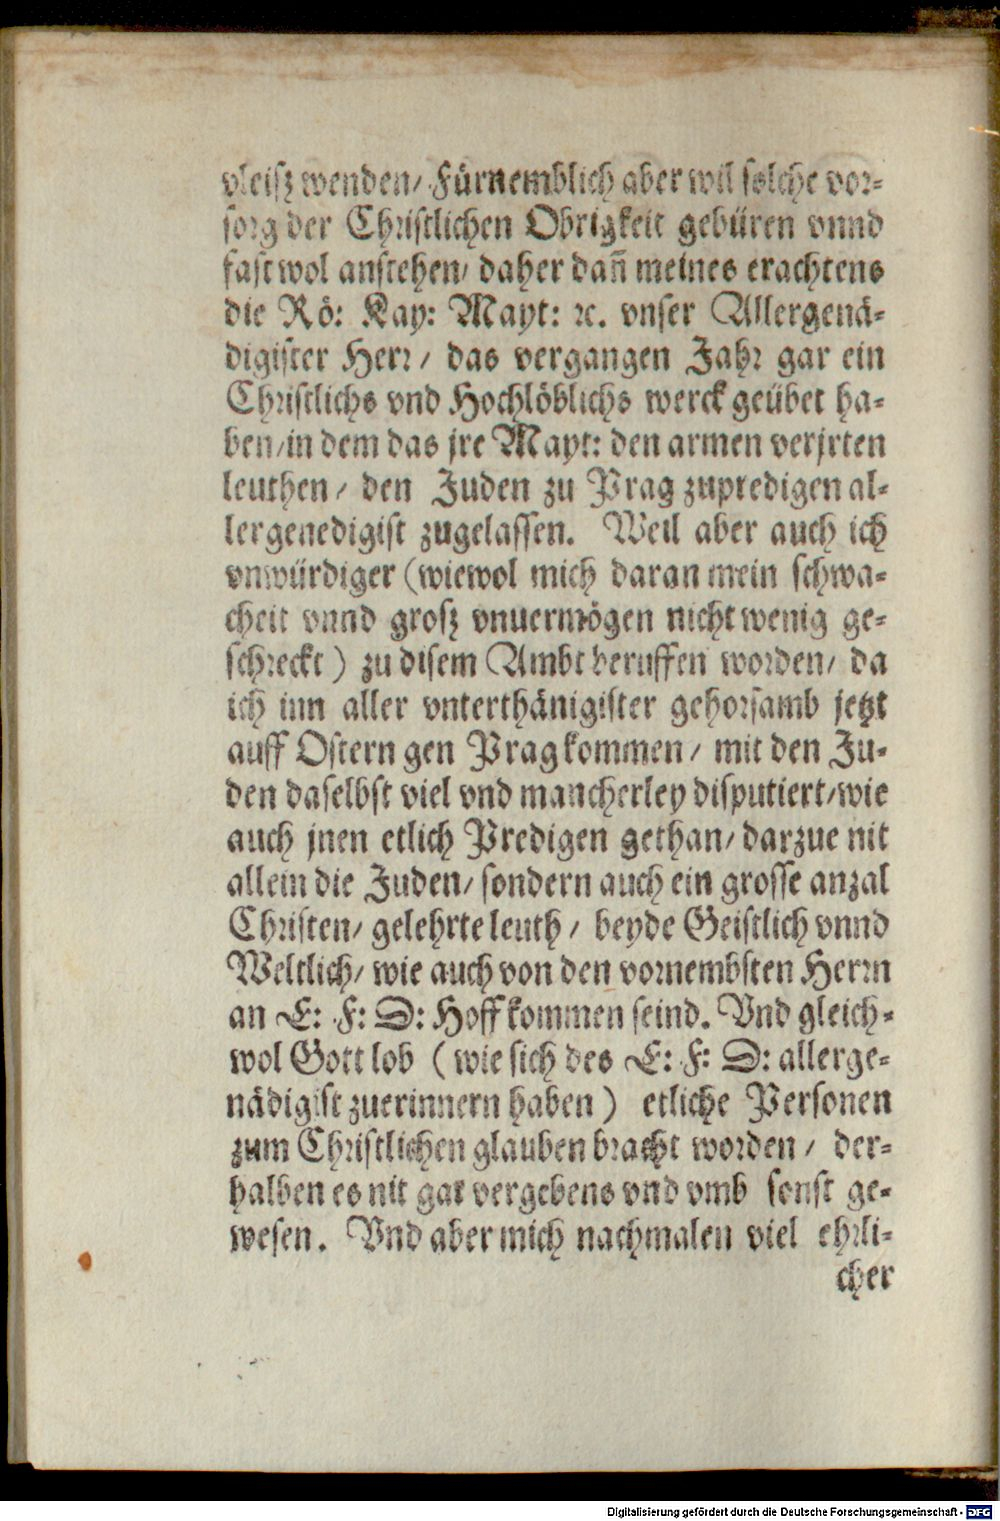 vleisz wenden/ Fürnemblich aber wil solche vor-
sorg der Christlichen Obrigkeit gebüren vnnd
fast wol anstehen/ daher dañ meines erachtens
die Rö: Kay: Mayt: ꝛc. vnser Allergenä-
digister Herr/ das vergangen Jahr gar ein
Christlichs vnd Hochlöblichs werck geübet ha-
ben/in dem das jre Mayt: den armen verjrten
leuthen/ den Juden zu Prag zupredigen al-
lergenedigist zugelassen. Weil aber auch ich
vnwürdiger (wiewol mich daran mein schwa-
cheit vnnd grosz vnuermögen nicht wenig ge-
schreckt) zu disem Ambt beruffen worden/ da
ich inn aller vnterthänigister gehorsamb jetzt
auff Ostern gen Prag kommen/ mit den Ju-
den daselbst viel vnd mancherley disputiert/wie
auch jnen etlich Predigen gethan/ darzue nit
allein die Juden/ sondern auch ein grosse anzal
Christen/ gelehrte leuth/ beyde Geistlich vnnd
Weltlich/ wie auch von den vornembsten Herrn
an E: F: D: Hoff kommen seind. Vnd gleich-
wol Gott lob (wie sich des E: F: D: allerge-
nädigist zuerinnern haben) etliche Personen
zum Christlichen glauben bracht worden/ der-
halben es nit gar vergebens vnd vmb sonst ge-
wesen. Vnd aber mich nachmalen viel ehrli-
cher
Digitalisierung gefördert durch die Deutsche Forschungsgemeinschaft - DFG